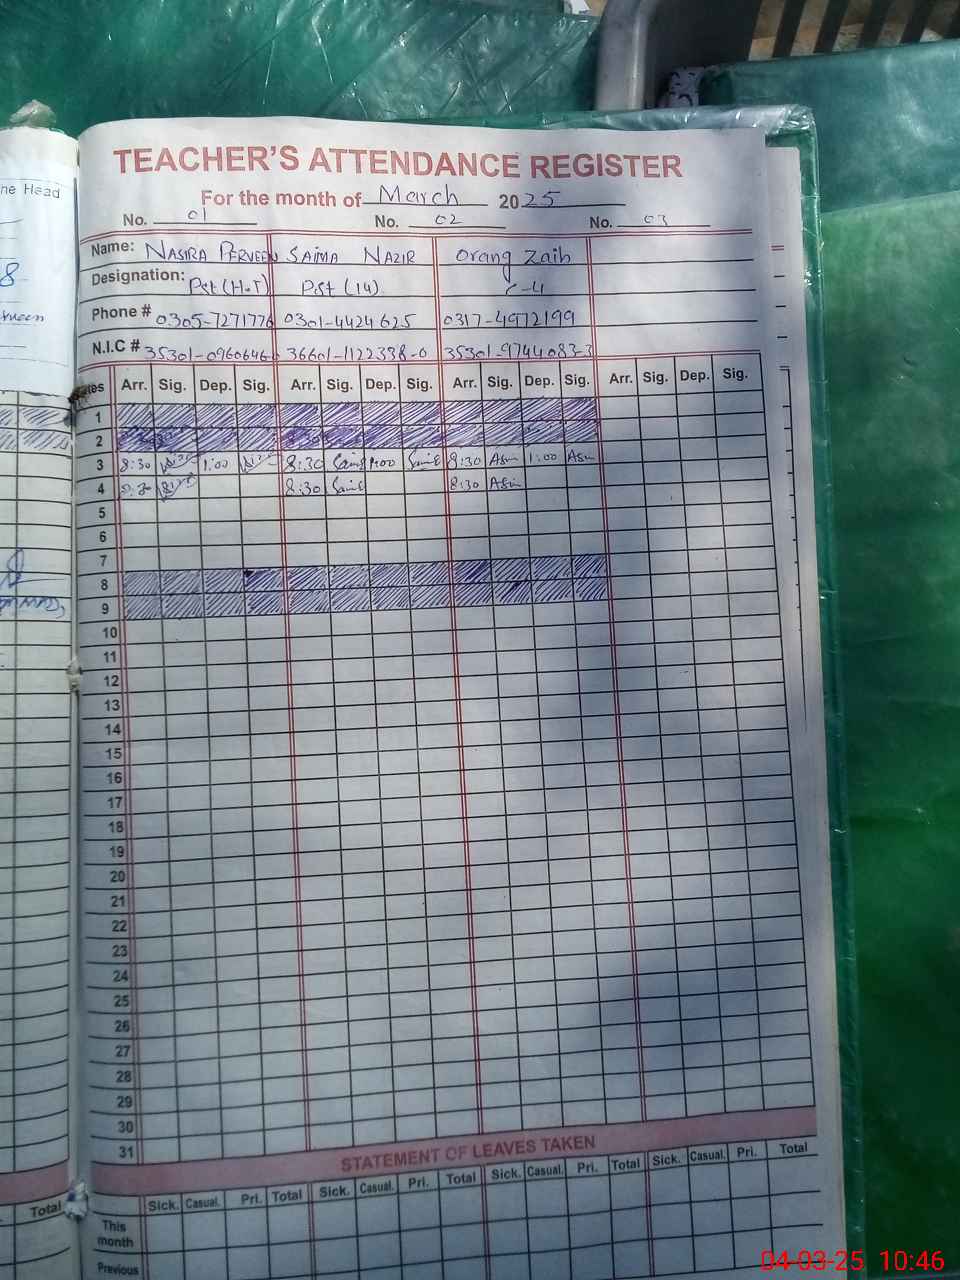 he Head
8
TEACHER'S ATTENDANCE REGISTER
For the month of March 2025
No. 01 No. 02 No. 03
Name: NASIRA PERVEEN SAIMA NAZIR Orang Zaib
Designation: Pst (H.T) PST (14) C-4
Phone # 0305-7271776 0301-4424625 0317-4972199
N.I.C # 35301-0960646- 36601-1122338-0 35301-9744083-3
tes Arr. Sig. Dep. Sig. Arr. Sig. Dep. Sig. Arr. Sig. Dep. Sig. Arr. Sig. Dep. Sig.
1
2
3 8:30 1:00 8:30 1:00 8:30 1:00
4 8:30 8:30 8:30
5
6
7
8
9
10
11
12
13
14
15
16
17
18
19
20
21
22
23
24
25
26
27
28
29
30
31
STATEMENT OF LEAVES TAKEN
Total Sick. Casual. Pri. Total Sick. Casual. Pri. Total Sick. Casual. Pri. Total Sick. Casual. Pri. Total
This
month
Previous
04-03-25 10:46